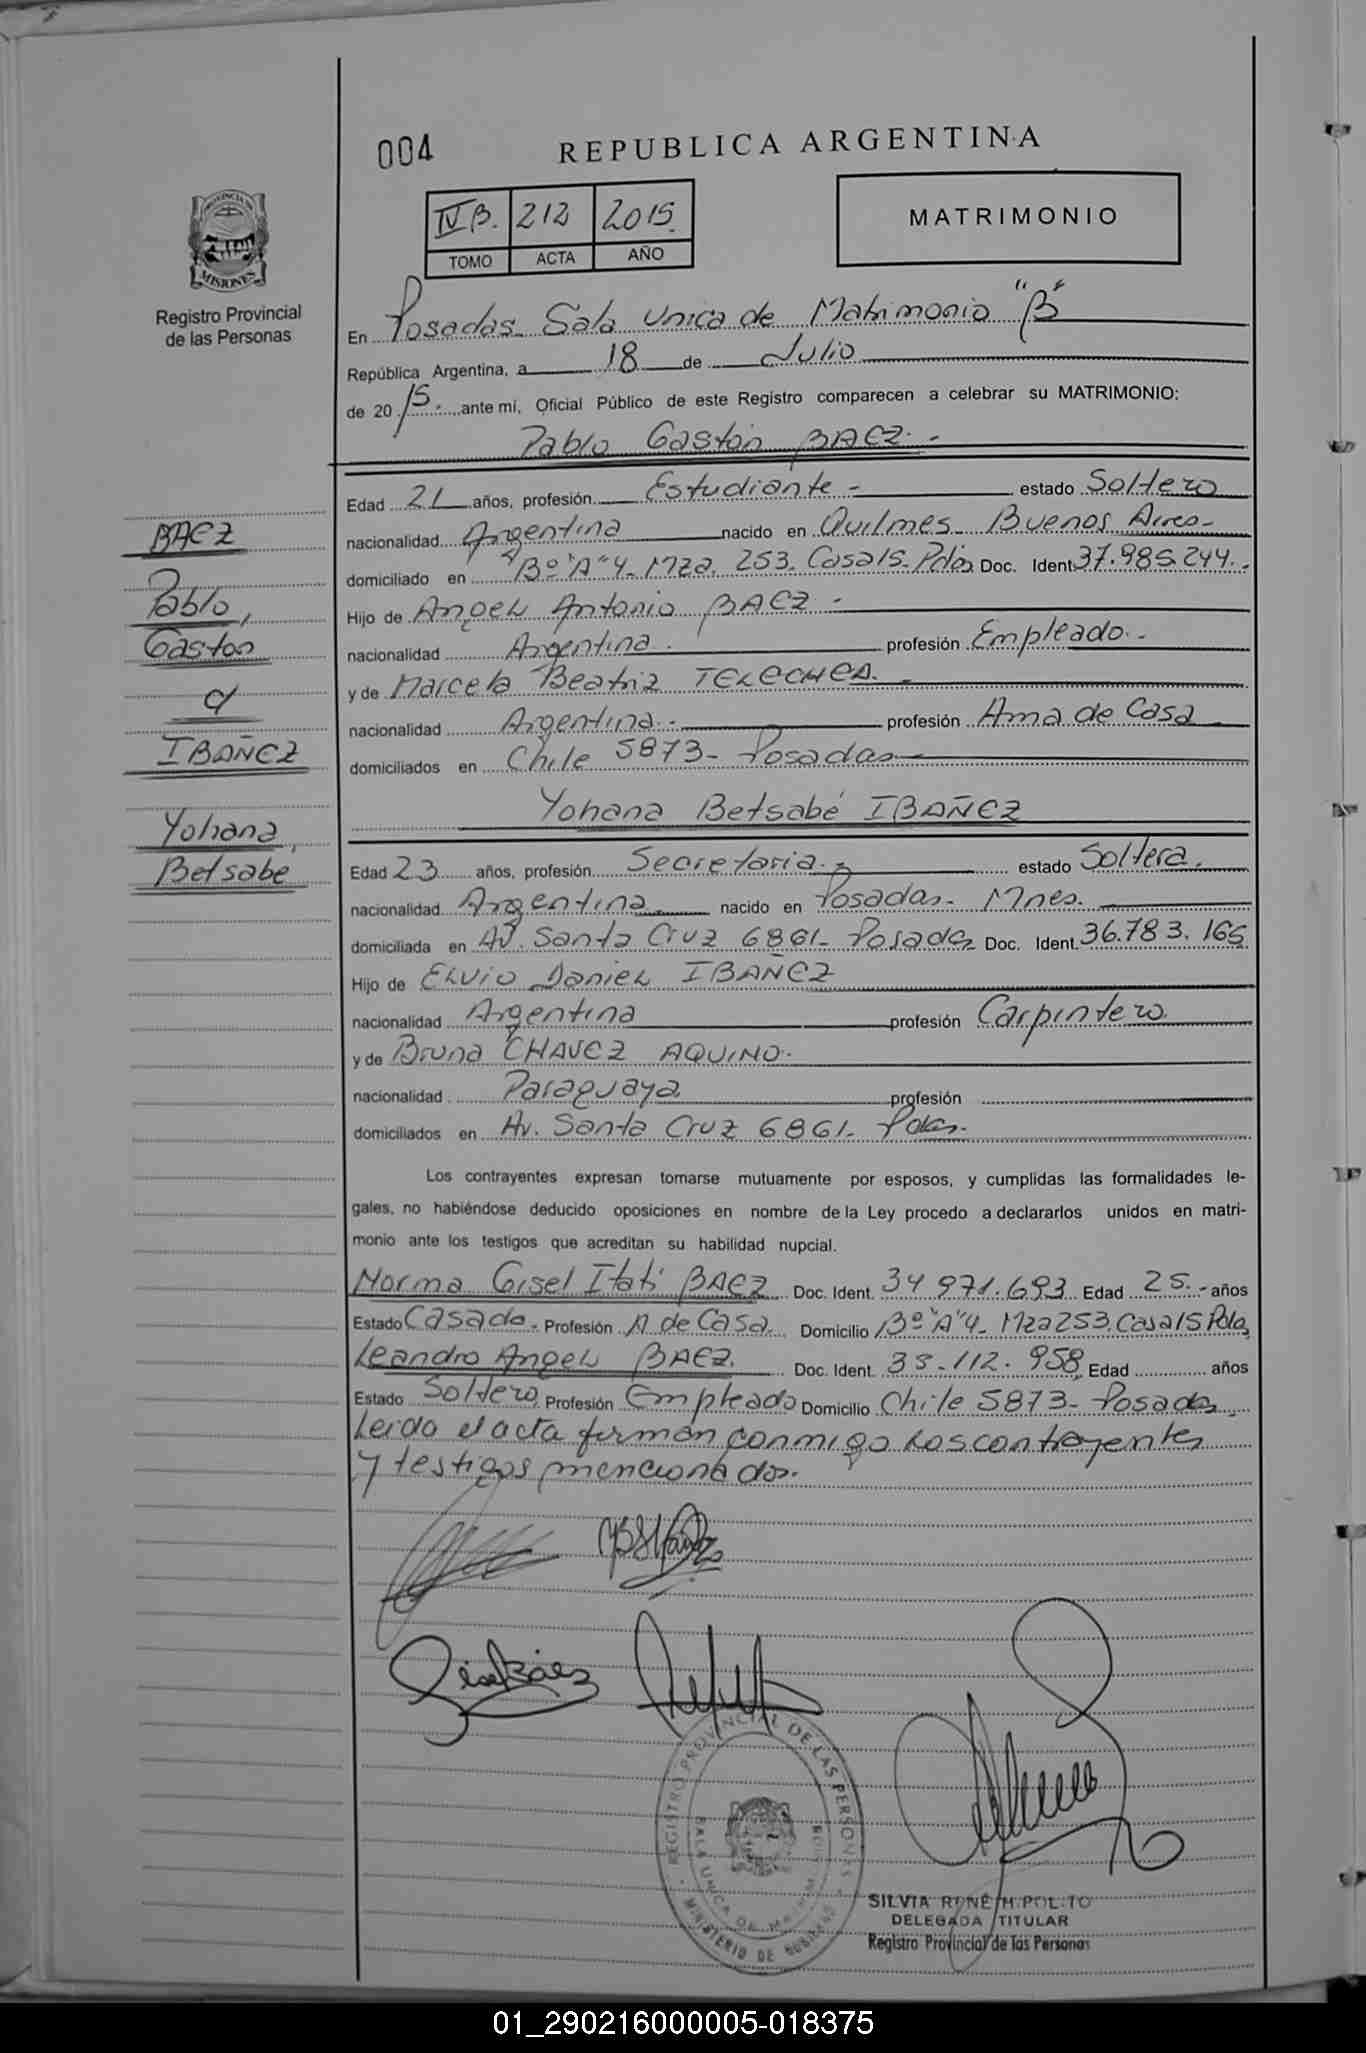 004 REPUBLICA ARGENTINA
IV B. 212 2015. MATRIMONIO
TOMO ACTA AÑO
PROVINCIA DE MISIONES
Registro Provincial
de las Personas
En Posadas Sala Unica de Matrimonio "B"
República Argentina, a 18 de Julio
de 2015. ante mí, Oficial Público de este Registro comparecen a celebrar su MATRIMONIO:
Pablo Gastón BAEZ.-
Edad 21 años, profesión Estudiante- estado Soltero
nacionalidad Argentina nacido en Quilmes Buenos Aires-
domiciliado en Bº "A" 4- Mza. 253. Casa 15- Pdas Doc. Ident. 37.985.244.-
Hijo de Angel Antonio BAEZ-
nacionalidad Argentina. profesión Empleado.-
y de Marcela Beatriz TELECHEA.-
nacionalidad Argentina.- profesión Ama de Casa
domiciliados en Chile 5873- Posadas
Yohana Betsabé IBAÑEZ
Edad 23 años, profesión Secretaria.- estado Soltera.
nacionalidad Argentina nacido en Posadas- Mnes.
domiciliada en Av. Santa Cruz 6861- Posadas Doc. Ident. 36.783.165
Hijo de Elvio Daniel IBAÑEZ
nacionalidad Argentina profesión Carpintero.
y de Bruna CHAVEZ AQUINO.
nacionalidad Paraguaya profesión
domiciliados en Av. Santa Cruz 6861- Pdas.
Los contrayentes expresan tomarse mutuamente por esposos, y cumplidas las formalidades le-
gales, no habiéndose deducido oposiciones en nombre de la Ley procedo a declararlos unidos en matri-
monio ante los testigos que acreditan su habilidad nupcial.
Norma Gisel Itatí BAEZ Doc. Ident. 34 971.693 Edad 25.- años
Estado Casada. Profesión A de Casa. Domicilio Bº "A" 4- Mza 253. Casa 15 Pdas
Leandro Angel BAEZ. Doc. Ident. 33-112.958 Edad años
Estado Soltero Profesión Empleado Domicilio Chile 5873- Posadas
Leido el acta firman conmigo Los contrayentes
y testigos mencionados.
BAEZ
Pablo,
Gaston
c/
IBAÑEZ
Yohana,
Betsabe
Gisel Báez
REGISTRO PROVINCIAL DE LAS PERSONAS
SALA UNICA DE MATRIM
MINISTERIO DE GOBIERNO
SILVIA RENE HIPOLITO
DELEGADA TITULAR
Registro Provincial de las Personas
01_290216000005-018375